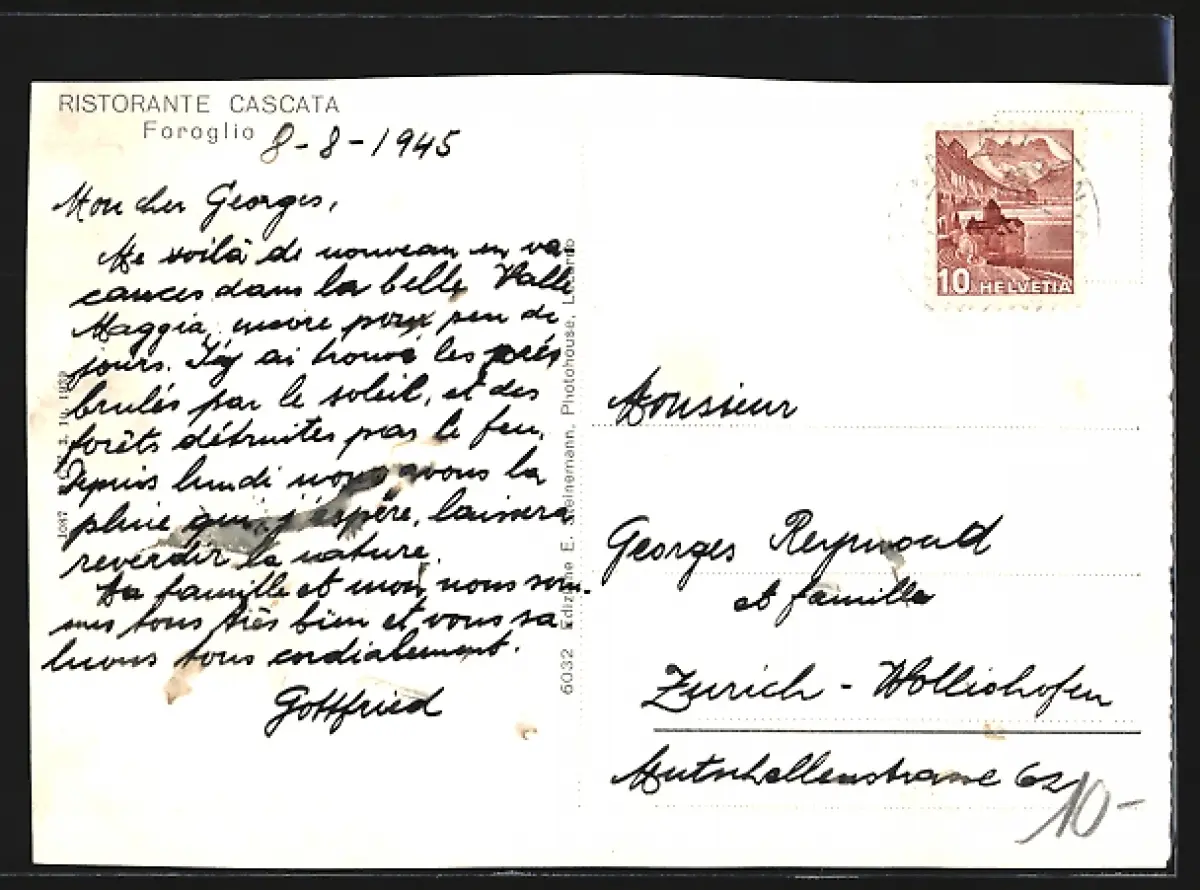 RISTORANTE CASCATA
Foroglio
8-8-1945
Mon cher Georges,
Me voilà de nouveau en va-
cances dans la belle Valle
Maggia, encore pour peu de
jours. J'y ai trouvé les prés
brulés par le soleil, et des
forêts détruites par le feu.
Depuis lundi nous avons la
pluie qui, j'espère, laissera
reverdir la nature.
Ma famille et moi, nous som-
mes tous très bien et vous sa
luons tous cordialement.
Gottfried
6032 Edizione E. Steinemann, Photohouse, Locarno
10 HELVETIA
Monsieur
Georges Reymond
et famille
Zurich - Wollishofen
Mutschellenstrasse 62
10-